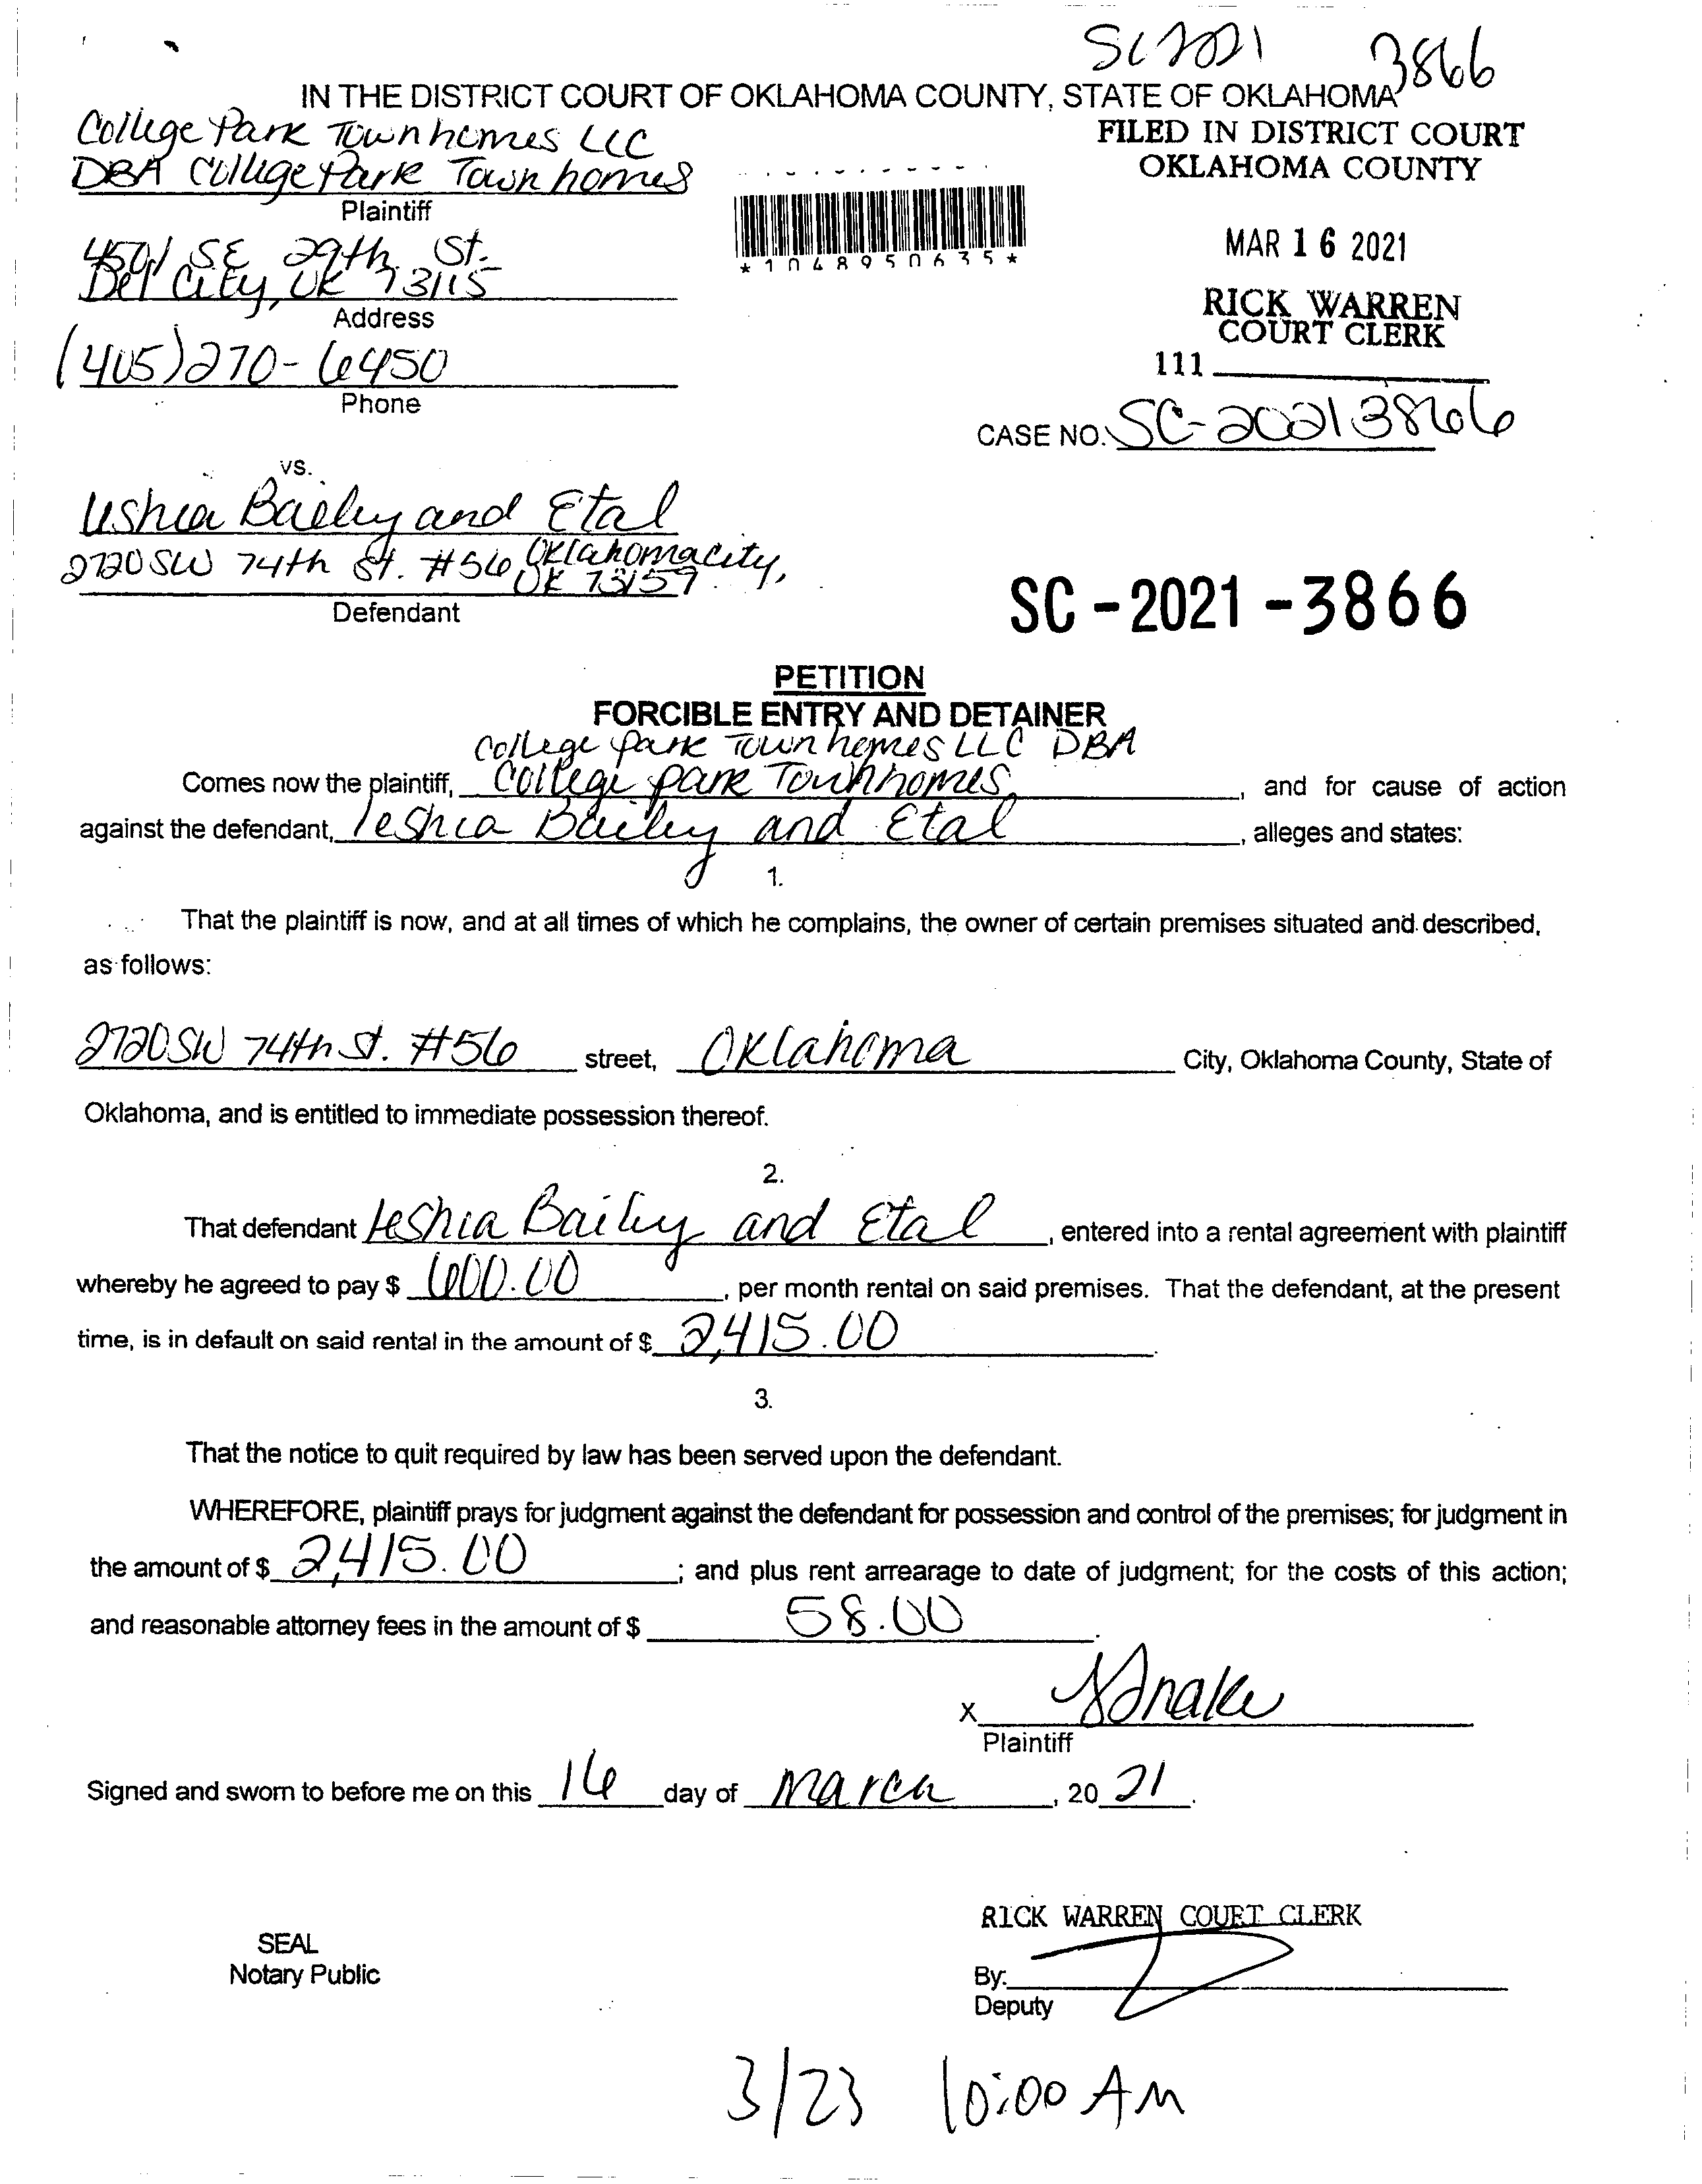 SC2021 3866
IN THE DISTRICT COURT OF OKLAHOMA COUNTY, STATE OF OKLAHOMA
College Park Townhomes LLC
DBA College Park Townhomes
Plaintiff
4501 SE 29th St.
Del City, OK 73115
Address
(405)270-6450
Phone
FILED IN DISTRICT COURT
OKLAHOMA COUNTY
*1048950635*
MAR 16 2021
RICK WARREN
COURT CLERK
111
CASE NO. SC-20213866
vs.
Ieshia Bailey and Etal
2720 SW 74th St. #56 Oklahoma city,
OK 73159
Defendant
SC-2021-3866
PETITION
FORCIBLE ENTRY AND DETAINER
College Park Townhomes LLC DBA
Comes now the plaintiff, College Park Townhomes, and for cause of action
against the defendant, Ieshia Bailey and Etal, alleges and states:
1.
That the plaintiff is now, and at all times of which he complains, the owner of certain premises situated and described,
as follows:
2720 SW 74th St. #56 street, Oklahoma City, Oklahoma County, State of
Oklahoma, and is entitled to immediate possession thereof.
2.
That defendant Ieshia Bailey and Etal, entered into a rental agreement with plaintiff
whereby he agreed to pay $ 600.00, per month rental on said premises. That the defendant, at the present
time, is in default on said rental in the amount of $ 2,415.00.
3.
That the notice to quit required by law has been served upon the defendant.
WHEREFORE, plaintiff prays for judgment against the defendant for possession and control of the premises; for judgment in
the amount of $ 2,415.00; and plus rent arrearage to date of judgment; for the costs of this action;
and reasonable attorney fees in the amount of $ 58.00.
X
Plaintiff
Signed and sworn to before me on this 16 day of March, 20 21.
RICK WARREN COURT CLERK
SEAL
Notary Public
By:
Deputy
3/23 10:00 AM